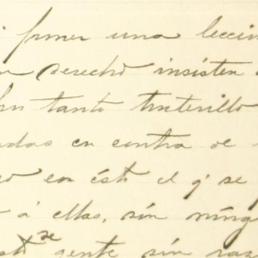 formar una lección
derecho insisten
tanto tinterillo
en contra de
en ésto el q' se
á ellas, sin ning
de gente sin raz